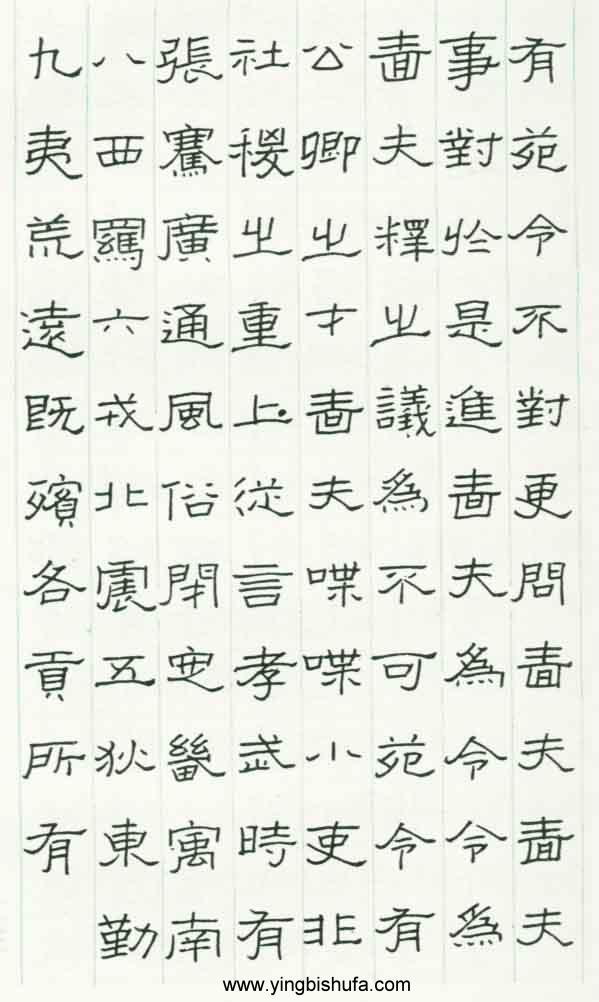 有苑令不對更問嗇夫嗇夫
事對於是進嗇夫為令令為
嗇夫釋之議為不可苑令有
公卿之才嗇夫喋喋小吏非
社稷之重上從言孝武時有
張騫廣通風俗開定畿寓南
八西羈六戎北震五狄東勤
九夷荒遠既殯各貢所有
www.yingbishufa.com